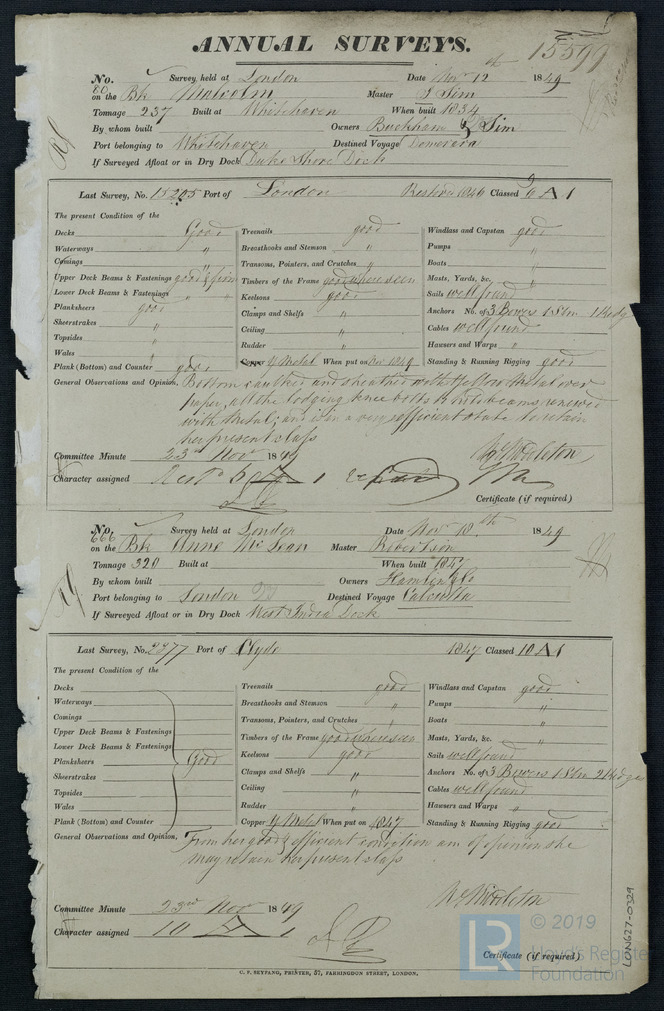 ANNUAL SURVEYS.
15599
No. 80 Survey held at London Date Nov 12th 1849
on the Bk Malcolm Master J Sim
Tonnage 237 Built at Whitehaven When built 1834
By whom built Owners Buckham & Sim
Port belonging to Whitehaven Destined Voyage Demerara
If Surveyed Afloat or in Dry Dock Duke Shore Dock
Last Survey, No. 15205 Port of London Restored 1846 Classed 6 A 1
The present Condition of the
Decks Good Treenails good Windlass and Capstan good
Waterways " Breasthooks and Stemson " Pumps "
Comings " Transoms, Pointers, and Crutches " Boats "
Upper Deck Beams & Fastenings good & firm Timbers of the Frame good where seen Masts, Yards, &c. "
Lower Deck Beams & Fastenings " Keelsons good Sails well found
Planksheers good Clamps and Shelfs " Anchors No. of 3 Bowers 1 Stm 1 Kedg
Sheerstrakes " Ceiling " Cables well found
Topsides " Rudder " Hawsers and Warps "
Wales " Copper Y Metal When put on Nov 1849 Standing & Running Rigging good
Plank (Bottom) and Counter good
General Observations and Opinion, Bottom caulked and sheathed with Yellow Metal over
paper, all the lodging knee bolts & beams renewed
with Metal; and is in a very efficient state to retain
her present class
Committee Minute 23rd Nov 1849 Middleton
Character assigned A 1
Certificate (if required)
No. 666 Survey held at London Date Nov 10th 1849
on the Bk Anne McLean Master Robertson
Tonnage 320 Built at When built 1847
By whom built Owners
Port belonging to London Destined Voyage Calcutta
If Surveyed Afloat or in Dry Dock West India Dock
Last Survey, No. 2877 Port of Clyde 1847 Classed 10 A 1
The present Condition of the
Decks Treenails good Windlass and Capstan good
Waterways Breasthooks and Stemson " Pumps "
Comings Transoms, Pointers, and Crutches " Boats "
Upper Deck Beams & Fastenings Timbers of the Frame good where seen Masts, Yards, &c. "
Lower Deck Beams & Fastenings Keelsons good Sails well found
Planksheers Good Clamps and Shelfs " Anchors No. of 3 Bowers 1 Stm 2 Kedges
Sheerstrakes Ceiling " Cables well found
Topsides Rudder " Hawsers and Warps "
Wales Copper Y Metal When put on 1847 Standing & Running Rigging good
Plank (Bottom) and Counter
General Observations and Opinion, From her good & efficient condition am of opinion she
may retain her present class
Middleton
Committee Minute 23rd Nov 1849
Character assigned 10 A 1
Certificate (if required)
C. F. SEYFANG, PRINTER, 57, FARRINGDON STREET, LONDON.
LON627-0329
© 2019
LR Lloyd's Register
Foundation